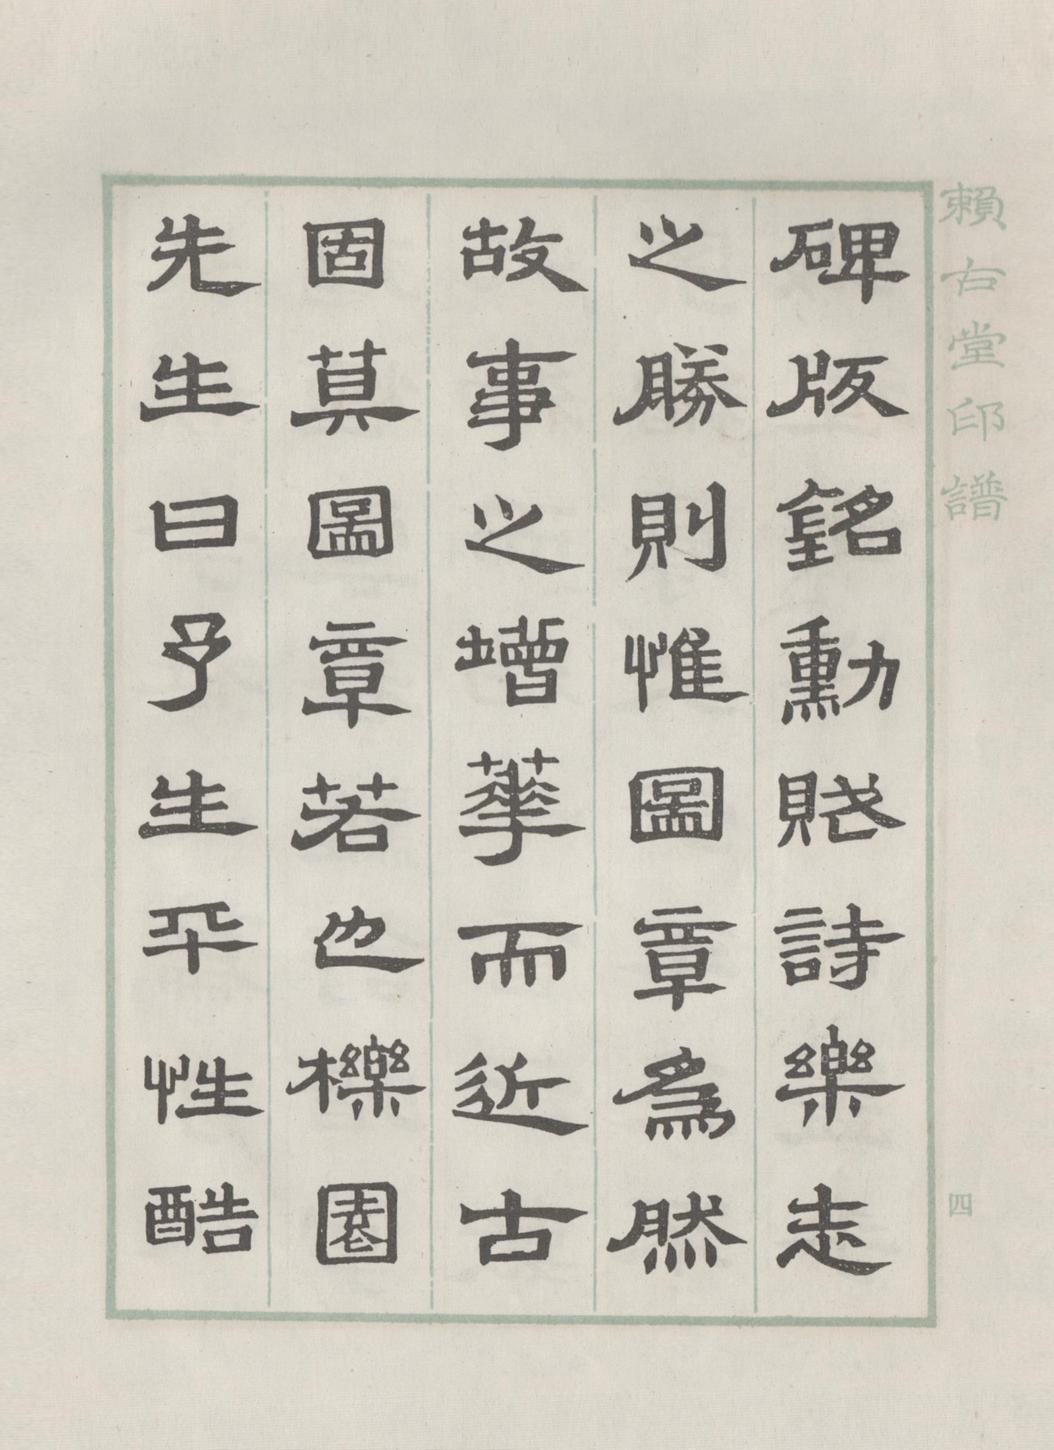 賴古堂印譜
四
碑版銘勳賦詩樂志
之勝則惟圖章為然
故事之增華而近古
固莫圖章若也櫟園
先生曰予生平性酷